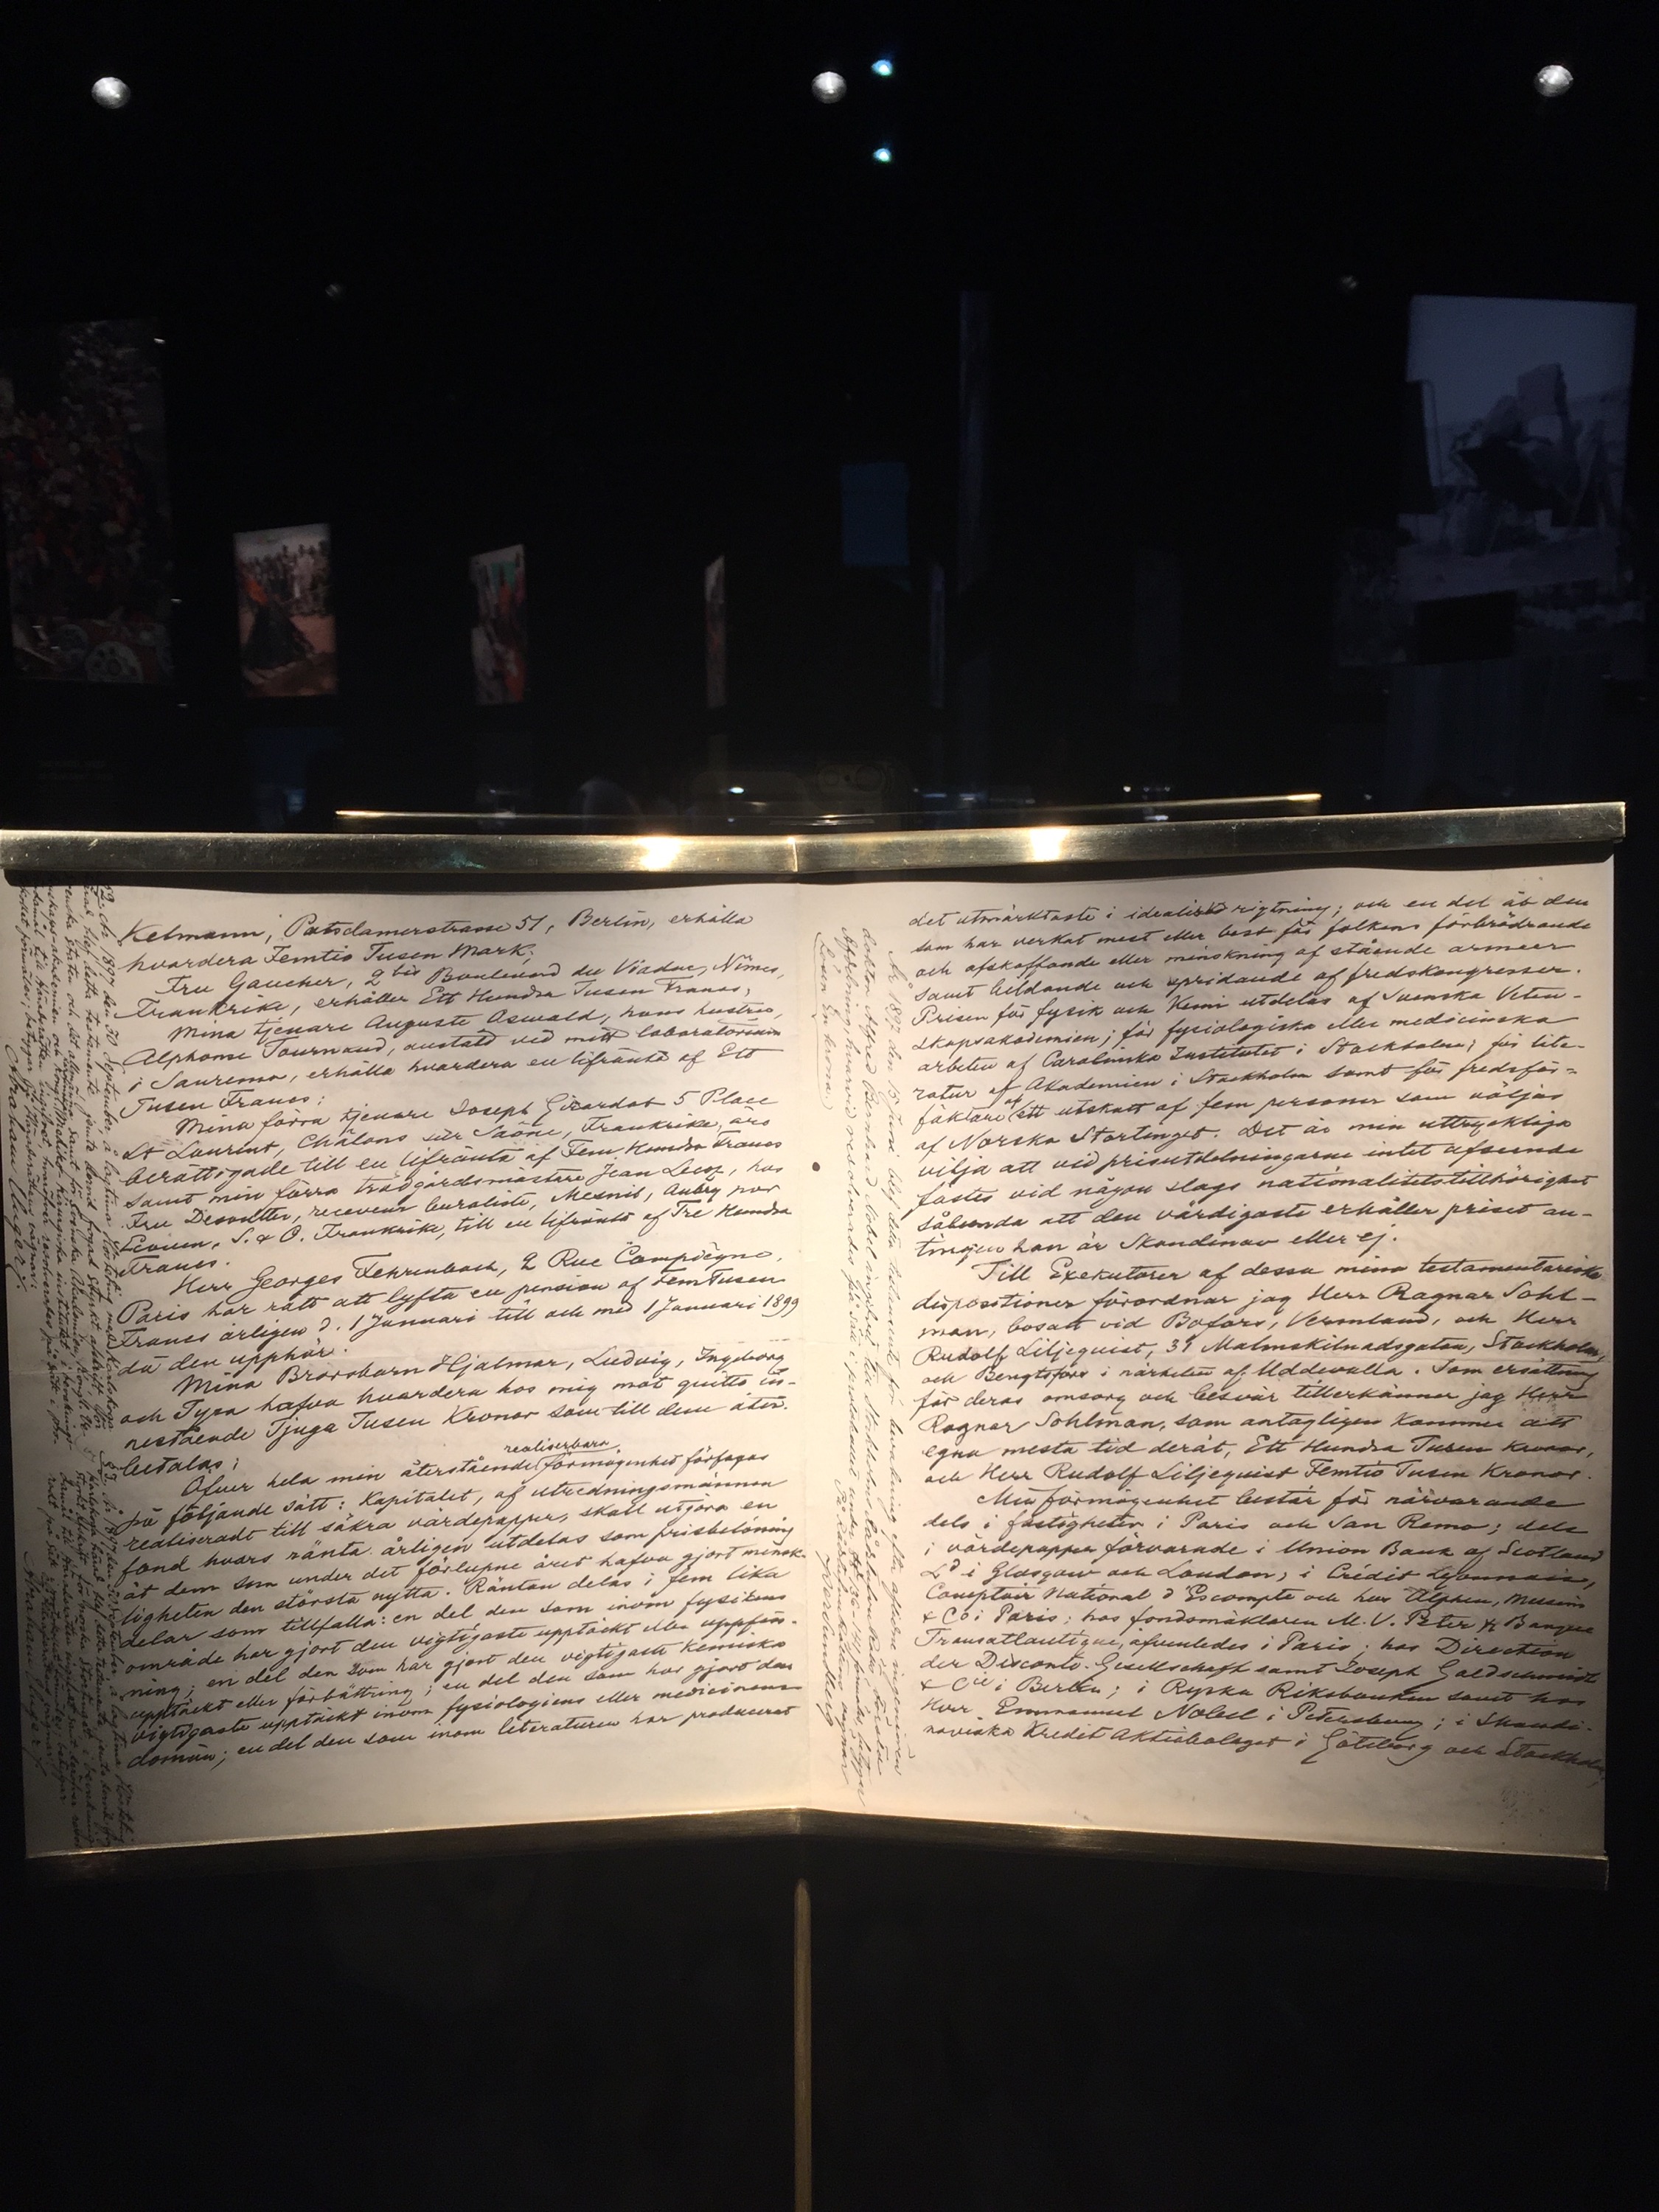 Kelmann, Potsdamerstrasse 51, Berlin, erhålla
hvardera Femtio Tusen Mark;
Fru Gaucher, 2 bis Boulevard du Viaduc, Nimes,
Frankrike, erhåller Ett Hundra Tusen Francs;
Mina tjenare Auguste Oswald, hans hustru,
Alphonse Tournand, anstald vid mitt laboratorium
i Sanremo, erhålla hvardera en lifränta af Ett
Tusen Francs;
Mina förra tjenare Joseph Girardot 5 Place
St Laurent, Châlons sur Saône, Frankrike, äro
berättigade till en lifränta af Fem Hundra Francs
samt min förra trädgårdsmästare Jean Lecof, hos
Fru Desoutter, receveur Curaliste, Mesnil, Aubry pour
Ecouen, S. & O. Frankrike, till en lifränta af Tre Hundra
Francs.
Herr Georges Fehrenbach, 2 Rue Compiègne,
Paris har rätt att lyfta en pension af FemTusen
Francs årligen d. 1 Januari till och med 1 Januari 1899
då den upphör.
Mina Brorsbarn Hjalmar, Ludvig, Ingeborg
och Tyra hafva hvardera hos mig mot quitto in-
nestående Tjugo Tusen Kronor som till dem åter-
betalas;
realiserbara
Öfver hela min återstående förmögenhet förfogas
på följande sätt: Kapitalet, af utredningsmännen
realiseradt till säkra värdepapper, skall utgöra en
fond hvars ränta årligen utdelas som prisbelöning
åt dem som under det förlupne året hafva gjort mensk-
ligheten den största nytta. Räntan delas i fem lika
delar som tillfalla: en del den som inom fysikens
område har gjort den vigtigaste upptäckt eller uppfin-
ning; en del den som har gjort den vigtigaste kemiska
upptäckt eller förbättring; en del den som har gjort den
vigtigaste upptäckt inom fysiologiens eller medicinens
domän; en del den som inom literaturen har producerat
det utmärktaste i idealisk rigtning; och en del åt den
som har verkat mest eller best för folkens förbrödrande
och afskaffande eller minskning af stående armeer
samt bildande och spridande af fredskongresser.
Prisen för fysik och kemi utdelas af Svenska Veten-
skapsakademien; för fysiologiska eller medicinska
arbeten af Carolinska Institutet i Stockholm; för lite-
ratur af Akademien i Stockholm samt för fredsför-
fäktare af ett utskott af fem personer som väljas
af Norska Stortinget. Det är min uttryckliga
vilja att vid prisutdelningarne intet afseende
fästes vid någon slags nationalitetstillhörighet
sålunda att den värdigaste erhåller priset an-
tingen han är Skandinav eller ej.
Till Exekutorer af dessa mina testamentariska
dispositioner förordnar jag Herr Ragnar Sohl-
man, bosatt vid Bofors, Vermland, och Herr
Rudolf Liljequist, 31 Malmskilnadsgatan, Stockholm,
och Bengtsfors i närheten af Uddevalla. Som ersättning
för deras omsorg och besvär tillerkänner jag Herr
Ragnar Sohlman, som antagligen kommer att
egna mesta tid deråt, Ett Hundra Tusen Kronor,
och Herr Rudolf Liljequist Femtio Tusen Kronor.
Min förmögenhet består för närvarande
dels i fastigheter i Paris och San Remo; dels
i värdepapper förvarade i Union Bank of Scotland
Ld i Glasgow och London; i Crédit Lyonnais,
Comptoir National d'Escompte och hos Alphen, Messin
& Co i Paris; hos fondmäklaren M. V. Peter & Banque
Transatlantique, äfvenledes i Paris; hos Direction
der Disconto Gesellschaft samt Joseph Goldschmidt
& Cie i Berlin; i Ryska Riksbanken samt hos
Herr Emmanuel Nobel i Petersburg; i Skandi-
naviska Kredit Aktiebolaget i Göteborg och Stockholm,